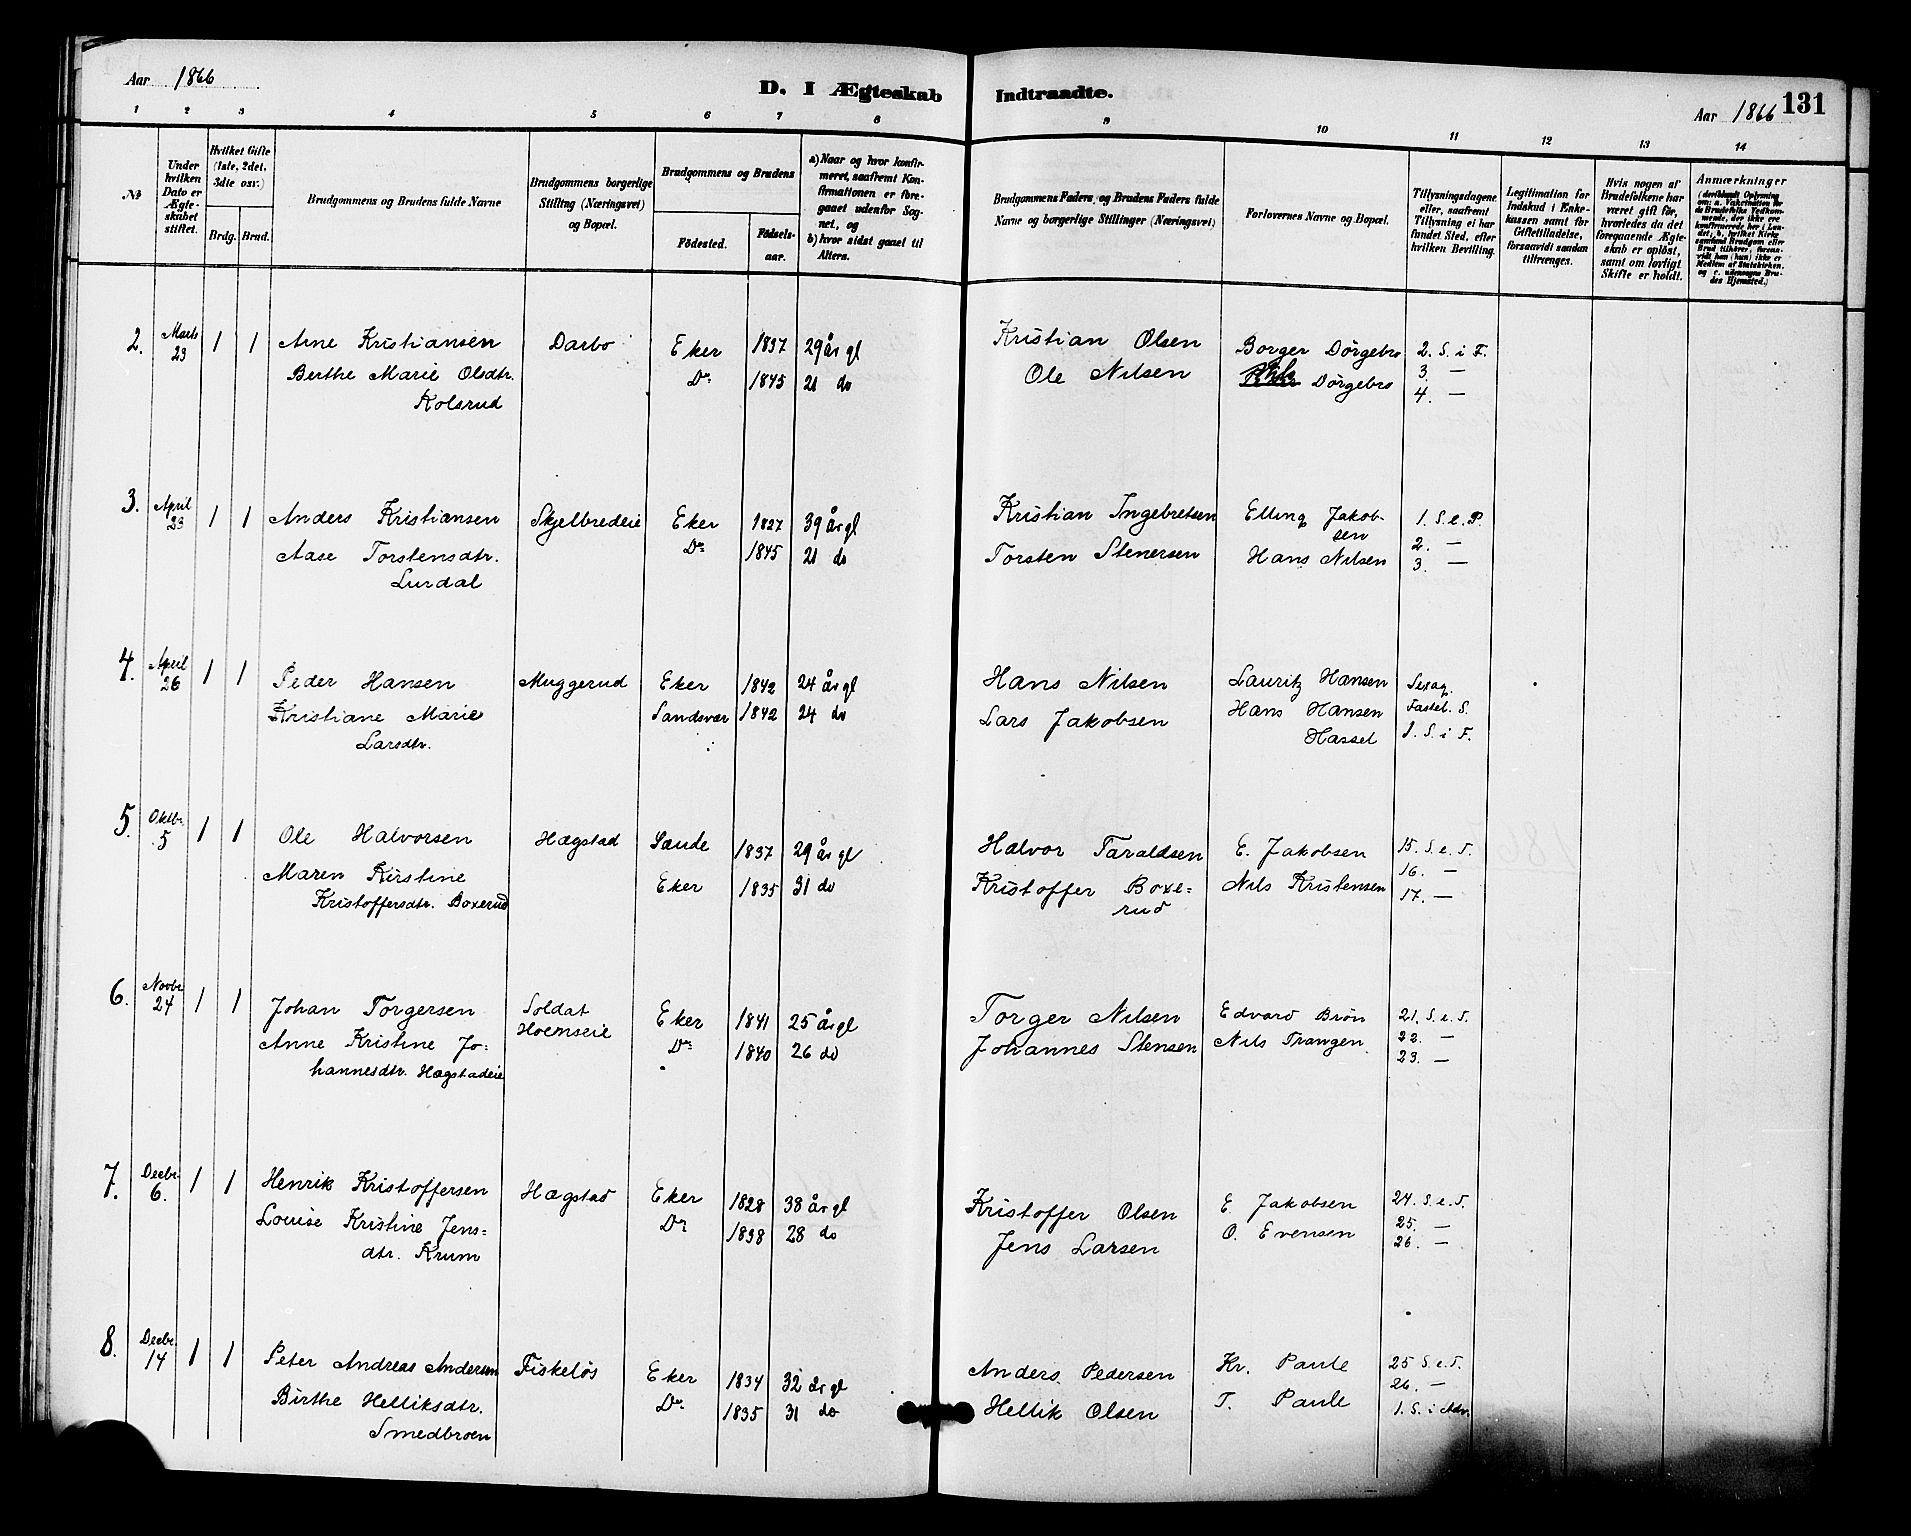 Aar 1866
D. I Ægteskab Indtraadte.
Aar 1866 131
1 2 3 4 5 6 7 8 9 10 11 12 13 14
No
Under hvilken Dato er Ægteskabet stiftet.
Hvilket Gifte (1ste, 2det, 3die osv.)
Brdg. Brud.
Brudgommens og Brudens fulde Navne
Brudgommens borgerlige Stilling (Næringsvei) og Bopæl.
Brudgommens og Brudens
Födested.
Födselsaar.
a) Naar og hvor konfirmeret, saafremt Konfirmationen er foregaaet udenfor Sognet, og
b) hvor sidst gaaet til Alters.
Brudgommens Faders, og Brudens Faders fulde Navne og borgerlige Stillinger (Næringsvei)
Forlovernes Navne og Bopæl.
Tillysningsdagene eller, saafremt Tillysning ei har fundet Sted, efter hvilken Bevilling.
Legitimation for Indskud i Enkekassen samt for Giftetilladelse, forsaavidt saadan tiltrænges.
Hvis nogen af Brudefolkene har været gift før, hvorledes da det foregaaende Ægteskab er opløst, samt om lovligt Skifte er holdt.
Anmærkninger
2. Marts 23 1 1 Arne Kristiansen Darbo Eker 1837 29 år gl Kristian Olsen Borger Dörgebro 2. S. i F.
Berthe Marie Olsdtr. Do 1845 21 do Ole Nilsen Dörgebro 3. —
Kolsrud 4. —
3. April 23 1 1 Anders Kristiansen Skjelbredeie Eker 1827 39 år gl Kristian Ingebretsen Elling Jakobsen 1. S. e. P.
Aase Torstensdtr. Do 1845 21 do Torsten Stenersen Hans Nilsen 2. —
Lurdal 3. —
4. April 26 1 1 Peder Hansen Muggerud Eker 1842 24 år gl Hans Nilsen Lauritz Hansen Sexag.
Kristiane Marie Sandsvær 1842 24 do Lars Jakobsen Hans Hansen Fastel. S.
Larsdtr. Hassel 1. S. i F.
5. Oktbr. 5 1 1 Ole Halvorsen Hægstad Saude 1837 29 år gl Halvor Taraldsen E. Jakobsen 15. S. e. T.
Maren Kirstine Eker 1835 31 do Kristoffer Boxerud Nils Kristensen 16. —
Kristoffersdtr. Boxerud 17. —
6. Novbr. 24 1 1 Johan Torgersen Soldat Eker 1841 25 år gl Torger Nilsen Edvard Brön 21. S. e. T.
Anne Kristine Jo- Hoenseie Do 1840 26 do Johannes Stensen Nils Trangen 22. —
hannesdtr. Hægstadeie 23. —
7. Decbr. 6. 1 1 Henrik Kristoffersen Hægstad Eker 1828 38 år gl Kristoffer Olsen E. Jakobsen 24. S. e. T.
Louise Kristine Jens- Do 1838 28 do Jens Larsen O. Evensen 25. —
dtr. Krum 26. —
8. Decbr. 14 1 1 Peter Andreas Andersen Fiskelös Eker 1834 32 år gl Anders Pedersen Kr. Paule 25 S. e. T.
Birthe Helliksdtr. Do 1835 31 do Hellik Olsen T. Paule 26. —
Smedbroen 1. S. i Adv.